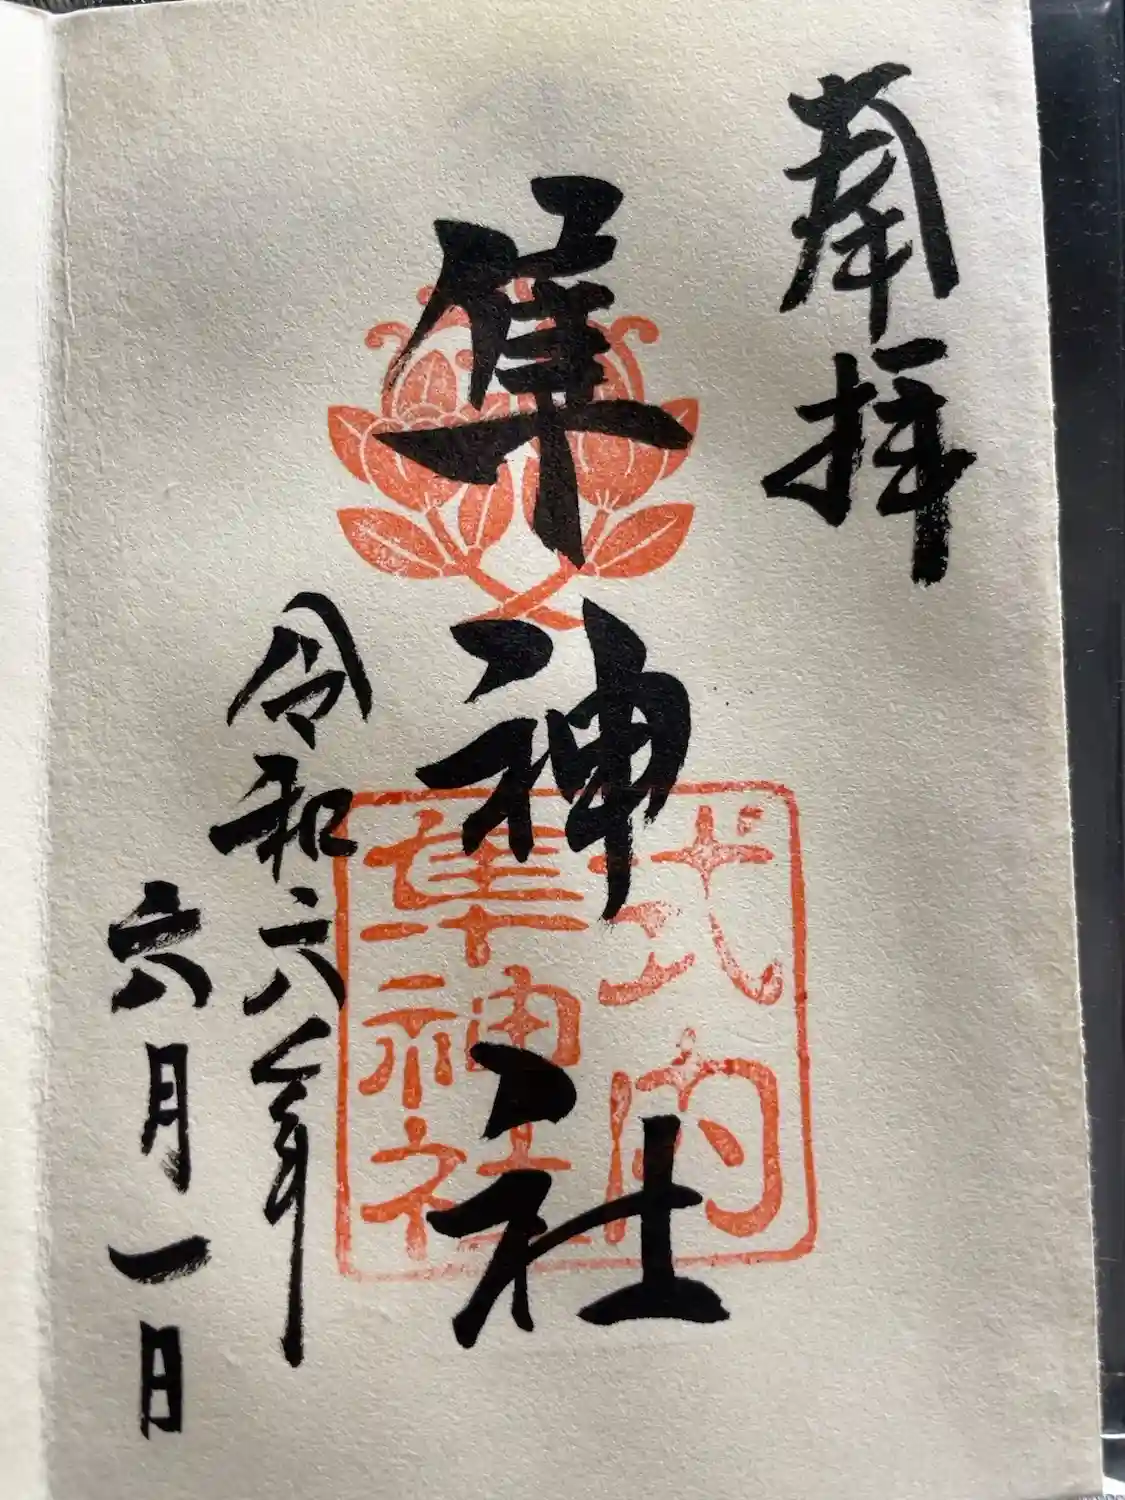 奉拝
隼神社
式内
隼神社
令和六年
六月一日